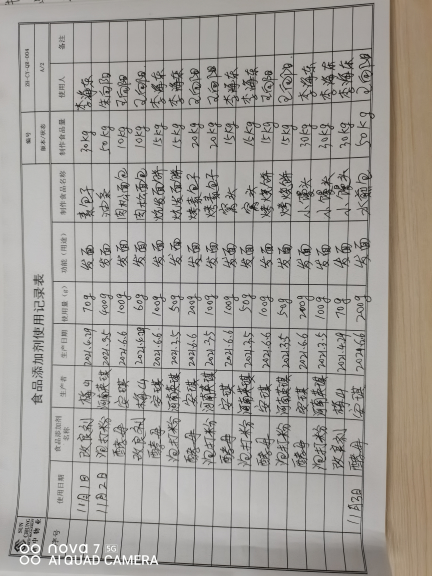 食品添加剂使用记录表
编号 ZH-CX-QB-004
版本/状态 A/2
序号 使用日期 食品添加剂名称 生产者 生产日期 使用量(g) 功能(用途) 制作食品名称 制作食品量 使用人 备注
11月1日 改良剂 梅山 2021.4.29 70g 发面 素包子 30kg 李海东
11月2日 泡打粉 河南英琪 2021.3.5 400g 发面 油条 50kg 朱向阳
酵母 安琪 2021.6.6 100g 发面 肉松面包 10kg 王向阳
改良剂 梅山 60g 发面 肉松面包 10kg 王向阳
酵母 安琪 2021.6.6 100g 发面 发面饼 15kg 李海东
泡打粉 河南英琪 2021.3.5 50g 发面 发面饼 15kg 李海东
酵母 安琪 2021.6.6 200g 发面 素包子 20kg 王向阳
泡打粉 河南英琪 2021.3.5 100g 发面 素包子 20kg 王向阳
酵母 安琪 2021.6.6 100g 发面 窝头 15kg 李海东
泡打粉 河南英琪 2021.3.5 50g 发面 窝头 15kg 李海东
酵母 安琪 2021.6.6 100g 发面 烤烧饼 15kg 王向阳
泡打粉 河南英琪 2021.3.5 50g 发面 烤烧饼 15kg 王向阳
酵母 安琪 2021.6.6 200g 发面 小馒头 30kg 李海东
泡打粉 河南英琪 2021.3.5 100g 发面 小馒头 30kg 李海东
改良剂 梅山 2021.4.29 70g 发面 小馒头 30kg 李海东
11月3日 酵母 安琪 2021.6.6 200g 发面 水煎包 50kg 王向阳
nova 7 5G
AI QUAD CAMERA